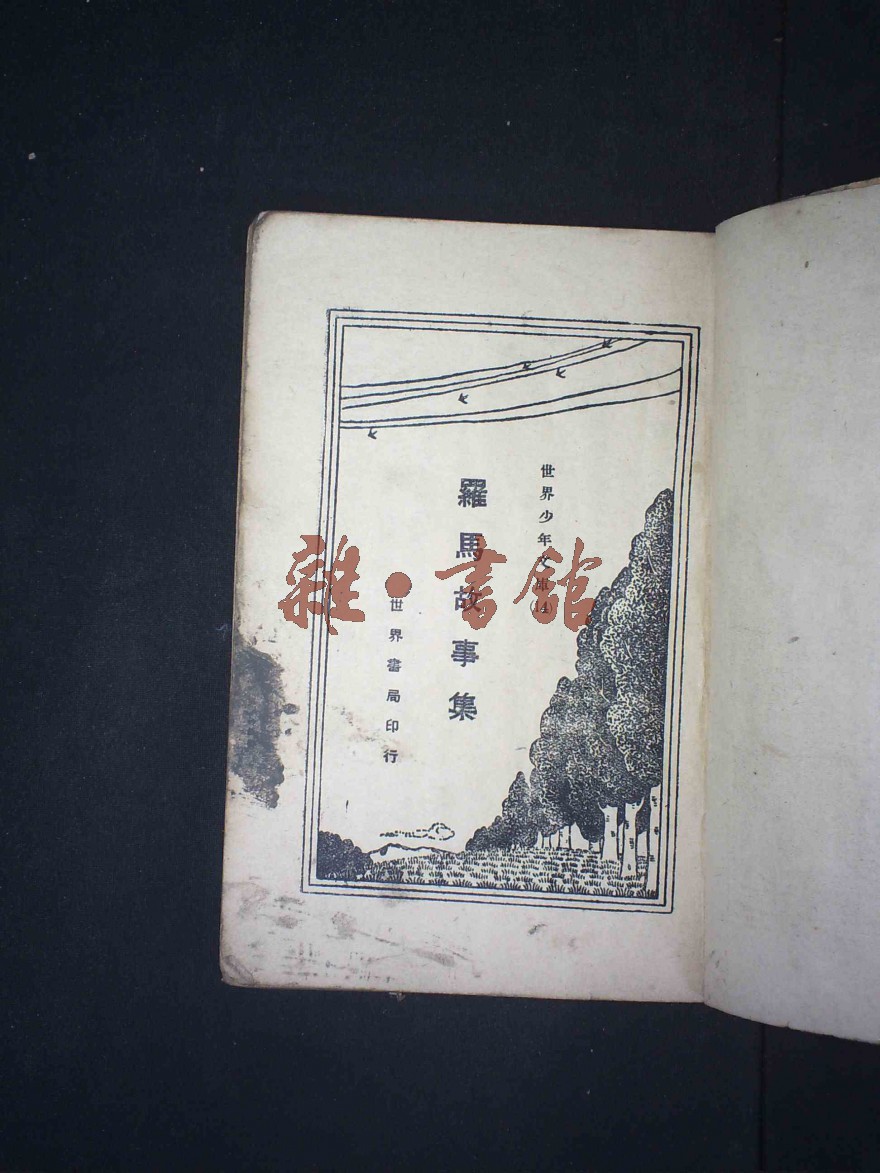 世界少年文庫(14)
羅馬故事集
世界書局印行
雜·書館